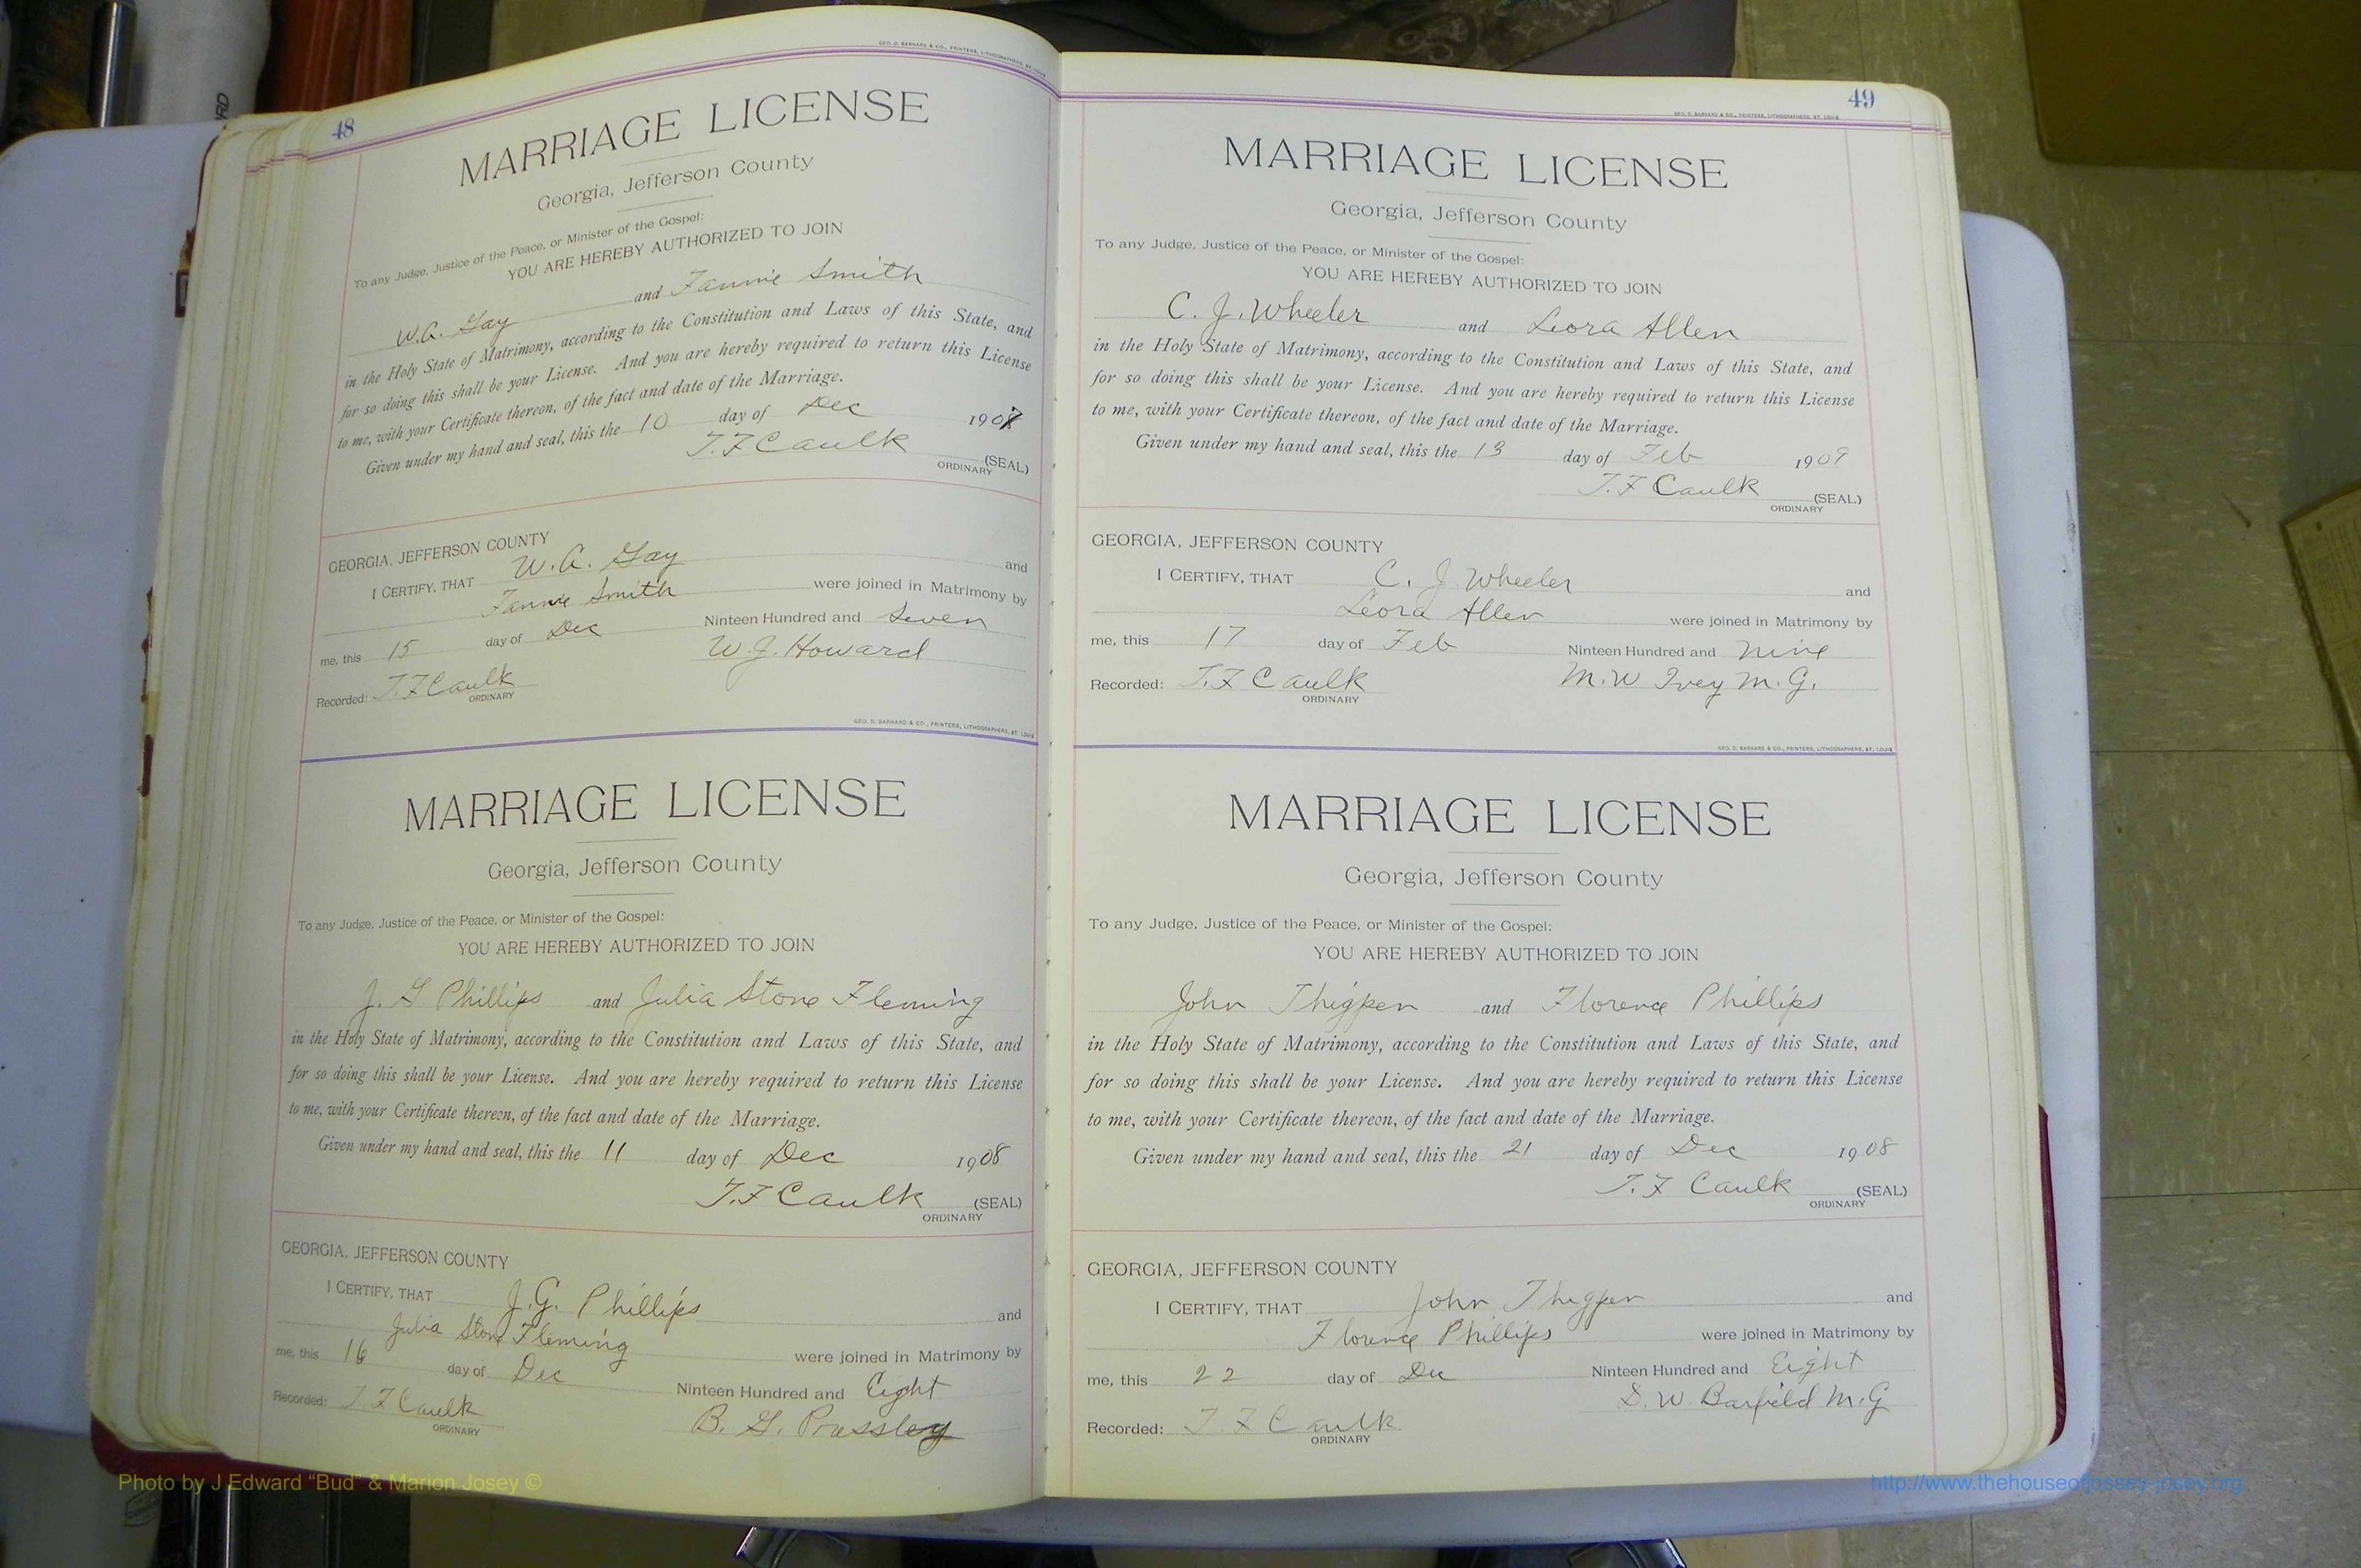 GEO. D. BARNARD & CO., PRINTERS, LITHOGRAPHERS, ST. LOUIS
48
MARRIAGE LICENSE
Georgia, Jefferson County
To any Judge, Justice of the Peace, or Minister of the Gospel:
YOU ARE HEREBY AUTHORIZED TO JOIN
W. A. Gay and Fannie Smith
in the Holy State of Matrimony, according to the Constitution and Laws of this State, and
for so doing this shall be your License. And you are hereby required to return this License
to me, with your Certificate thereon, of the fact and date of the Marriage.
Given under my hand and seal, this the 10 day of Dec 1907
T. F Caulk (SEAL)
ORDINARY
GEORGIA, JEFFERSON COUNTY
I CERTIFY, THAT W. A. Gay and
Fannie Smith were joined in Matrimony by
me, this 15 day of Dec Ninteen Hundred and Seven
W. J. Howard
Recorded: T. F Caulk
ORDINARY
GEO. D. BARNARD & CO., PRINTERS, LITHOGRAPHERS, ST. LOUIS
MARRIAGE LICENSE
Georgia, Jefferson County
To any Judge, Justice of the Peace, or Minister of the Gospel:
YOU ARE HEREBY AUTHORIZED TO JOIN
J. G Phillips and Julia Stone Fleming
in the Holy State of Matrimony, according to the Constitution and Laws of this State, and
for so doing this shall be your License. And you are hereby required to return this License
to me, with your Certificate thereon, of the fact and date of the Marriage.
Given under my hand and seal, this the 11 day of Dec 1908
T. F Caulk (SEAL)
ORDINARY
GEORGIA, JEFFERSON COUNTY
I CERTIFY, THAT J. G. Phillips and
Julia Stone Fleming were joined in Matrimony by
me, this 16 day of Dec Ninteen Hundred and Eight
B. G. Pressley
Recorded: T. F Caulk
ORDINARY
49
GEO. D. BARNARD & CO., PRINTERS, LITHOGRAPHERS, ST. LOUIS
MARRIAGE LICENSE
Georgia, Jefferson County
To any Judge, Justice of the Peace, or Minister of the Gospel:
YOU ARE HEREBY AUTHORIZED TO JOIN
C. J. Wheeler and Leora Allen
in the Holy State of Matrimony, according to the Constitution and Laws of this State, and
for so doing this shall be your License. And you are hereby required to return this License
to me, with your Certificate thereon, of the fact and date of the Marriage.
Given under my hand and seal, this the 13 day of Feb 1909
T. F Caulk (SEAL)
ORDINARY
GEORGIA, JEFFERSON COUNTY
I CERTIFY, THAT C. J Wheeler and
Leora Allen were joined in Matrimony by
me, this 17 day of Feb Ninteen Hundred and nine
M. W Ivey M. G.
Recorded: T. F Caulk
ORDINARY
GEO. D. BARNARD & CO., PRINTERS, LITHOGRAPHERS, ST. LOUIS
MARRIAGE LICENSE
Georgia, Jefferson County
To any Judge, Justice of the Peace, or Minister of the Gospel:
YOU ARE HEREBY AUTHORIZED TO JOIN
John Thigpen and Florence Phillips
in the Holy State of Matrimony, according to the Constitution and Laws of this State, and
for so doing this shall be your License. And you are hereby required to return this License
to me, with your Certificate thereon, of the fact and date of the Marriage.
Given under my hand and seal, this the 21 day of Dec 1908
T. F Caulk (SEAL)
ORDINARY
GEORGIA, JEFFERSON COUNTY
I CERTIFY, THAT John Thigpen and
Florence Phillips were joined in Matrimony by
me, this 22 day of Dec Ninteen Hundred and Eight
D. W Barfield M. G
Recorded: T. F Caulk
ORDINARY
Photo by J Edward “Bud” & Marion Josey ©
http://www.thehouseofjossey-josey.org